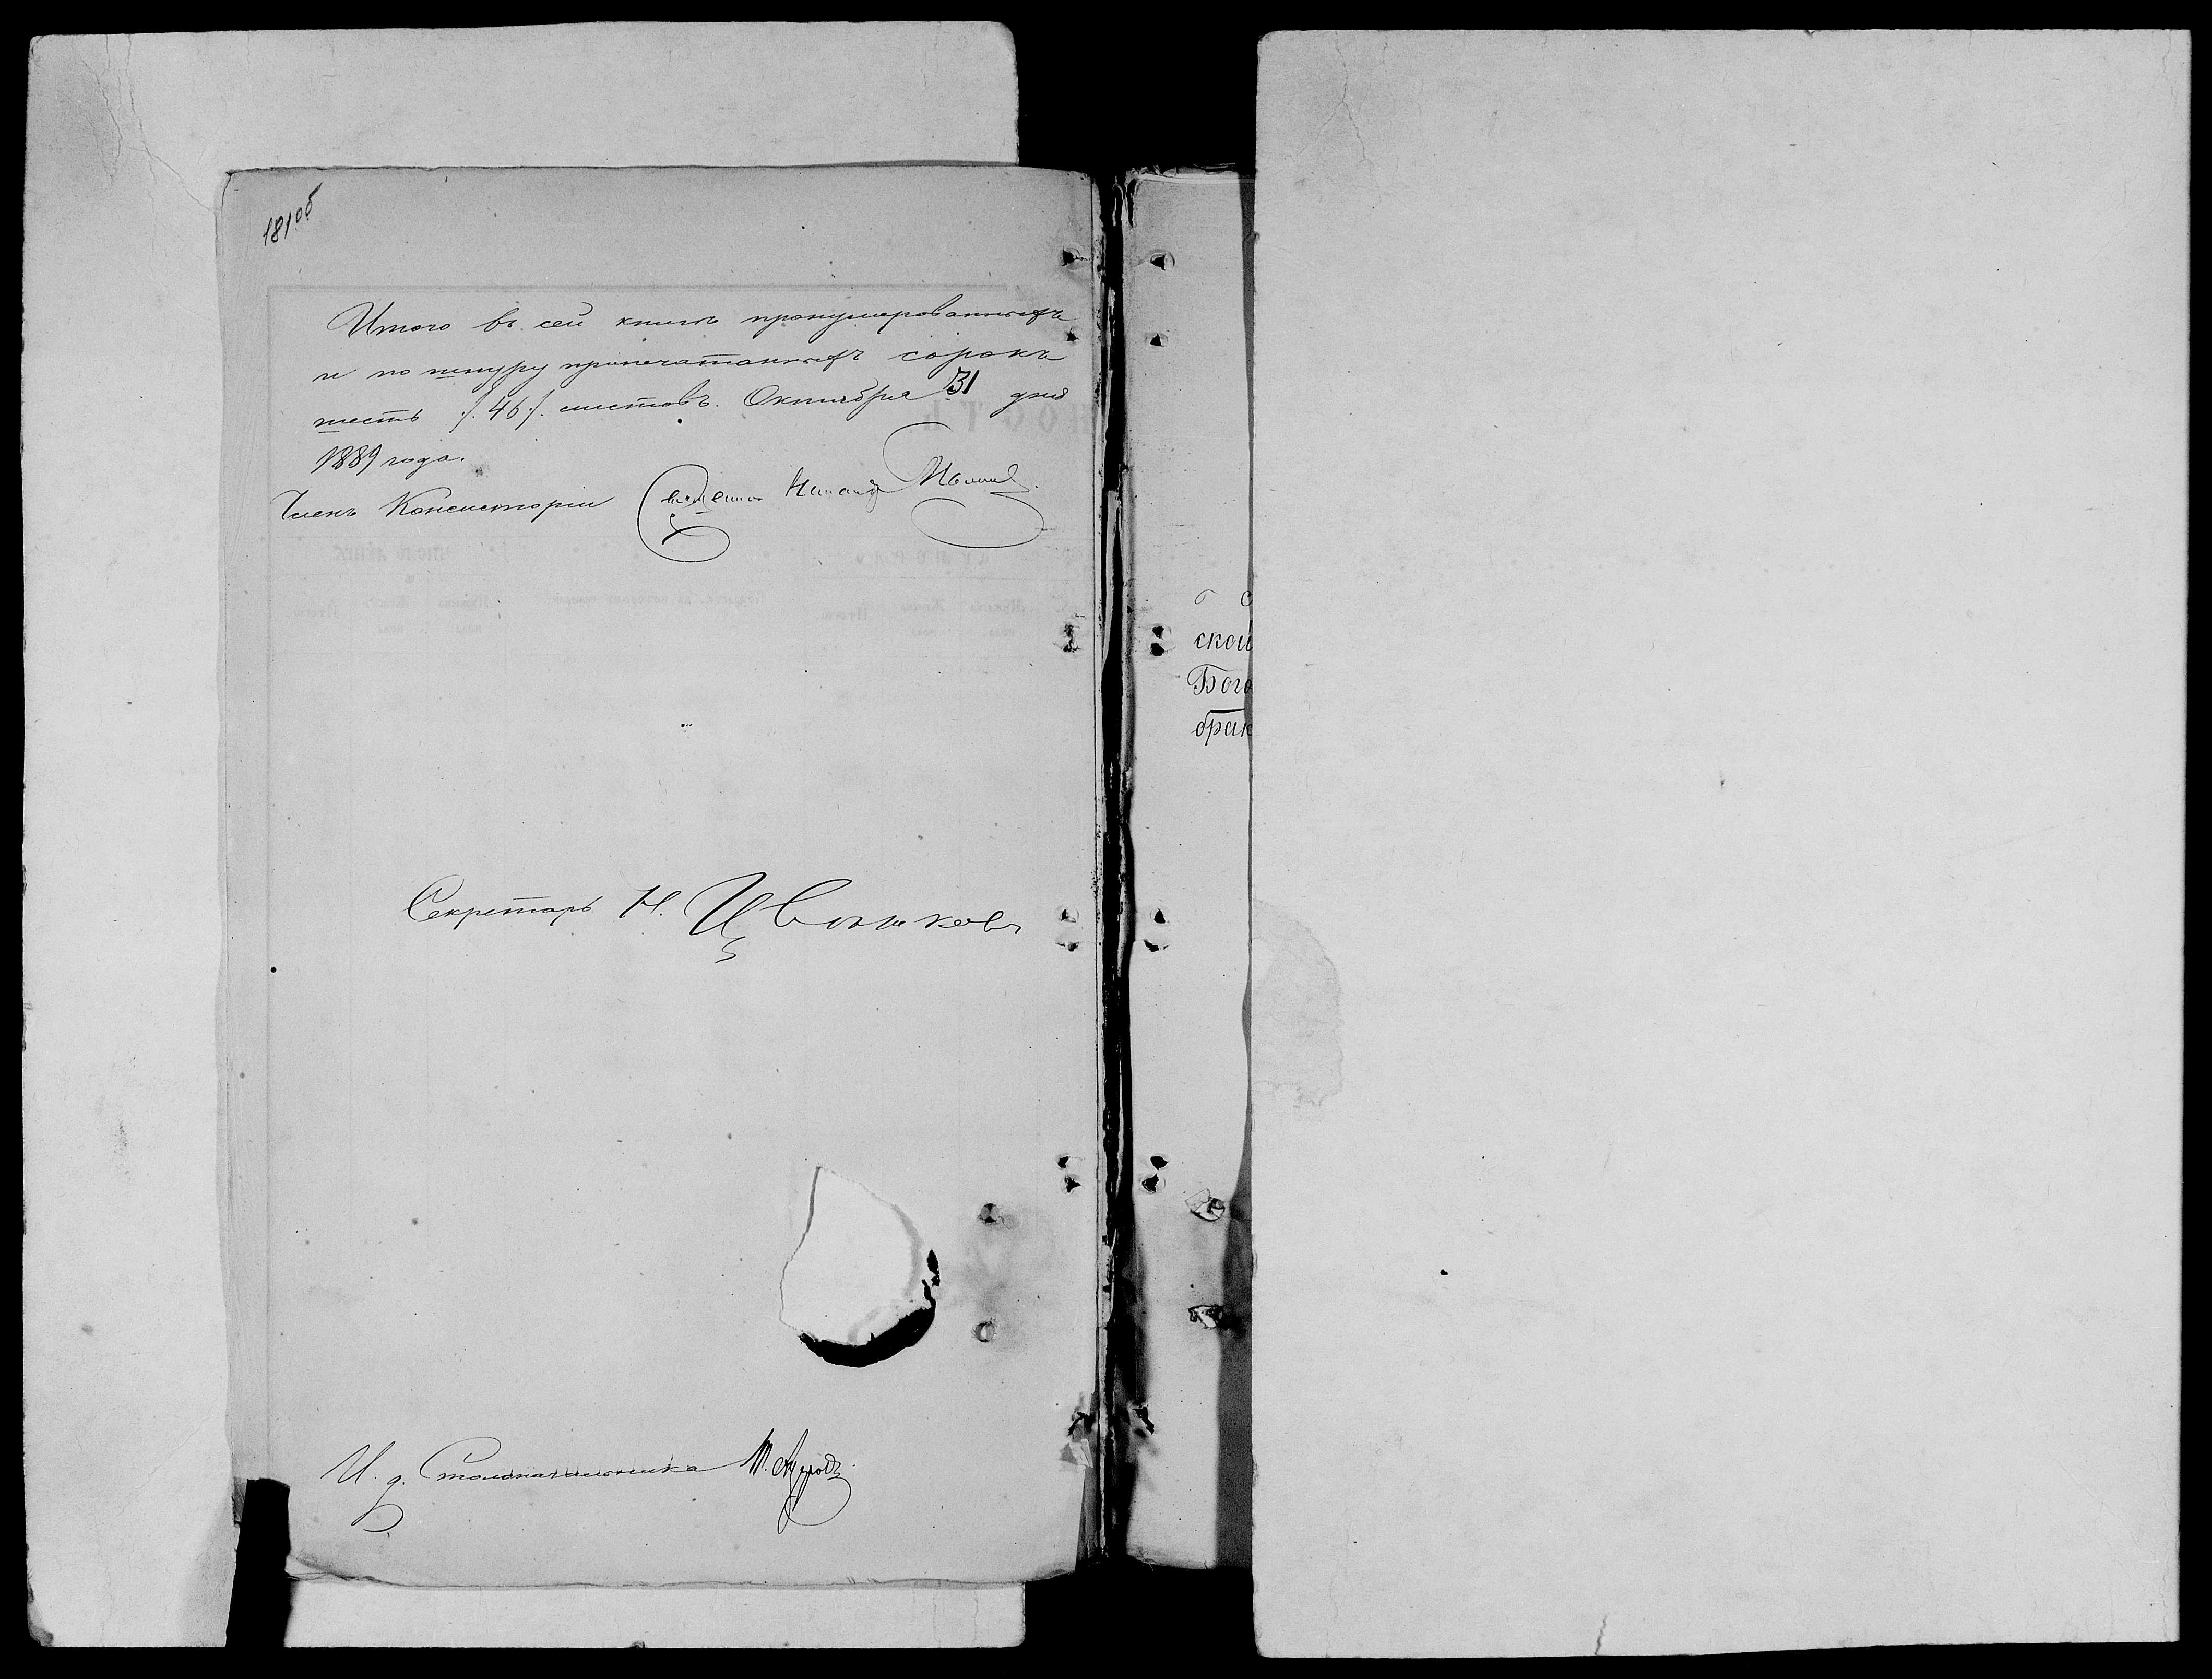 181об
Итого въ сей книгѣ пронумерованныхъ
и по шнуру пропечатанныхъ сорокъ
шесть /.46/. листовъ. Октября 31 дня
1889 года.
Членъ Консисторіи Священникъ
Секретарь Н. Цвѣтковъ
И. д. Столоначальника
ской
Бого
брак